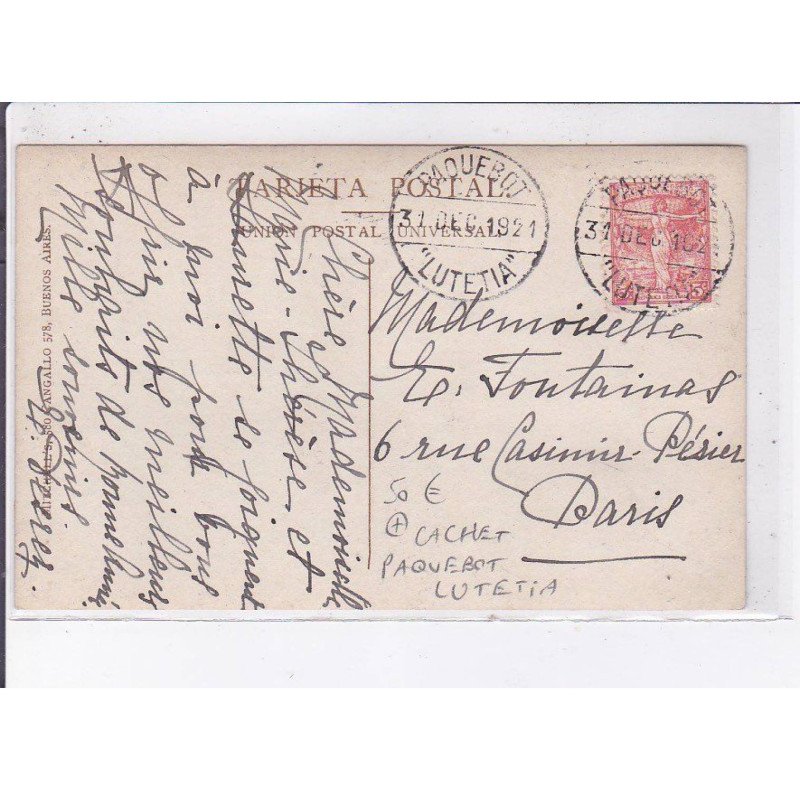 TARJETA POSTAL
UNION POSTAL UNIVERSAL
PAQUEBOT
31 DEC 1921
"LUTETIA"
PAQUEBO
31 DEC 192
"LUTETIA"
5c
Mademoiselle
E. Fontainas
6 rue Casimir-Périer
Paris
50 €
+ CACHET
PAQUEBOT
LUTETIA
Chère Mademoiselle
Marie-Thérèse et
Jeannette se joignent
à moi pour vous
offrir nos meilleurs
souhaits de bonne année
Mille souvenirs
MITCHELL'S, 580 CANGALLO 578, BUENOS AIRES.